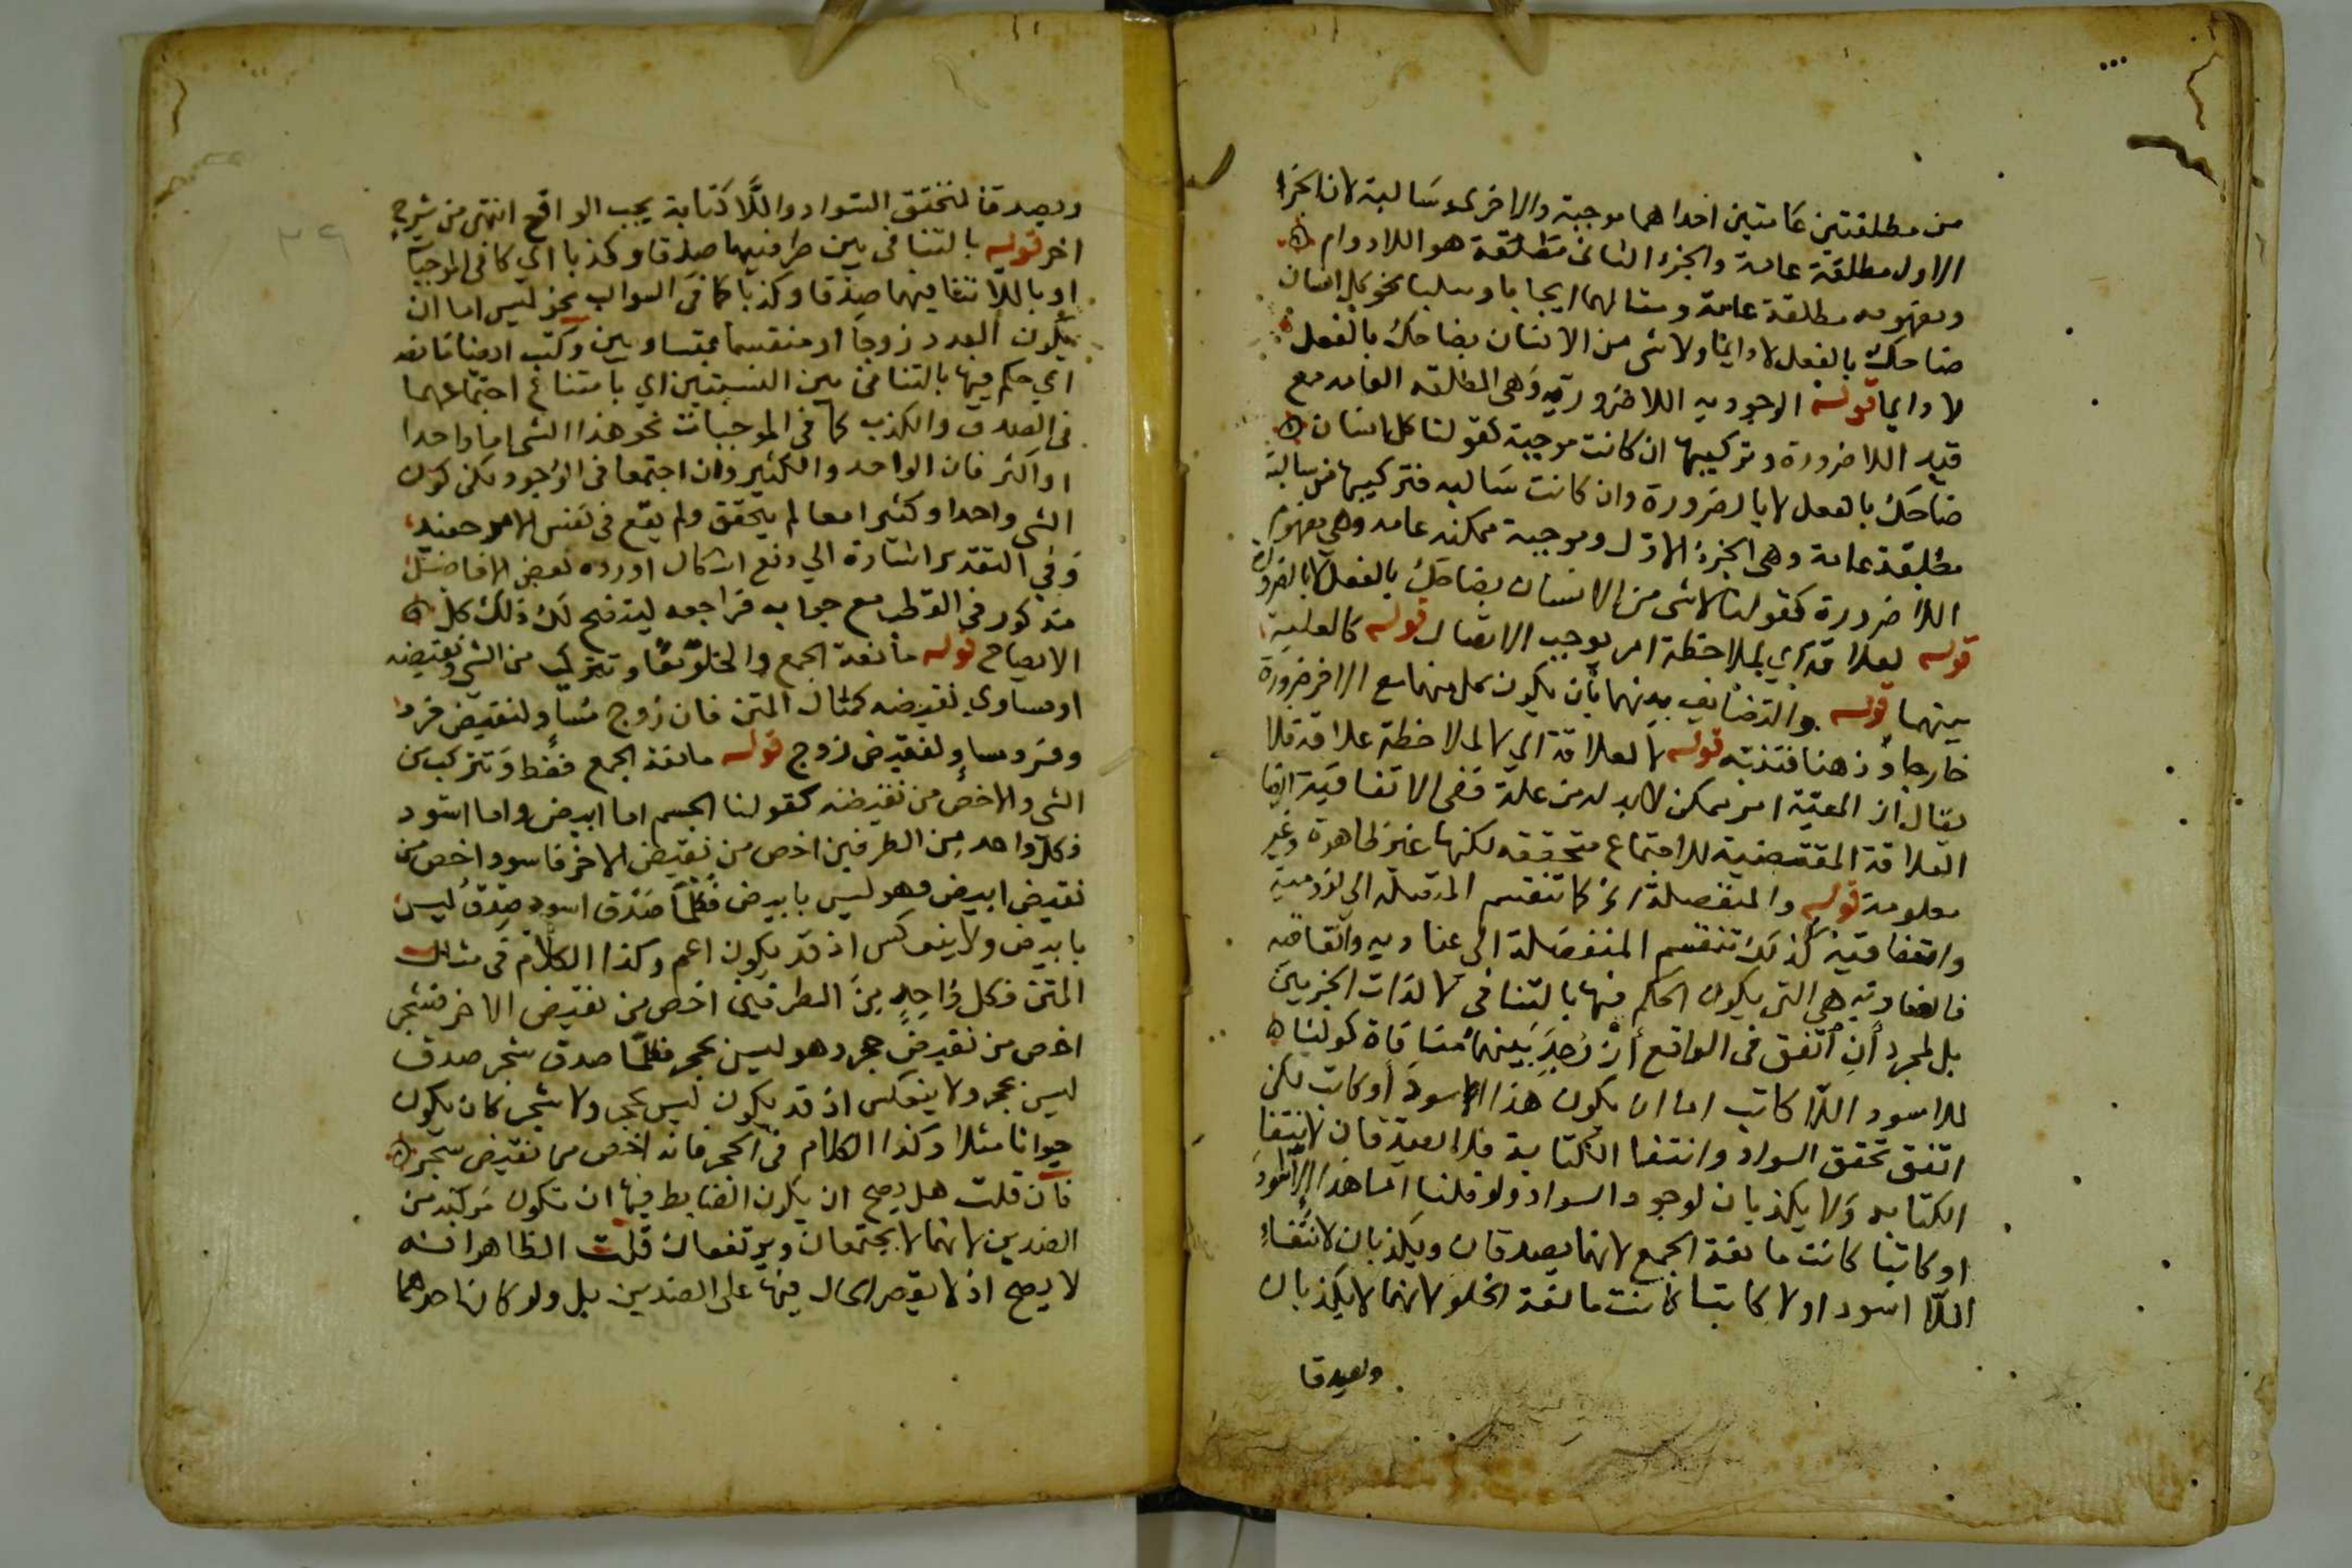 من مطلقتين عامتين احداهما موجبة والاخرى سالبة لان الجزء
الاول مطلقة عامة والجزء الثانى مطلقة هو اللادوام
ومفهومه مطلقة عامة ومثالهما ايجابا وسلبا نحو كل انسان
ضاحك بالفعل لا دائما ولا شى من الانسان بضاحك بالفعل
لا دايما قوله الوجوديه اللاضرورتيه وهى المطلقه العامه مع
قيد اللاضرورة وتركيبها ان كانت موجبة كقولنا كل انسان
ضاحك بالفعل لا بالضرورة وان كانت سالبه فتركيبها من سالبة
مطلقة عامة وهى الجزء الاول وموجبة ممكنه عامه وهى مفهوم
اللاضرورة كقولنا لا شى من الانسان بضاحك بالفعل لا بالضرورة
قوله لعلاقة اي بملاحظة امر يوجب الاتصال قوله كالعلية
بينهما قوله والتضايف بينهما بأن يكون كل منهما مع الاخر ضرورة
خارجا وذهنا فتنبه قوله لا لعلاقة اي لا لملاحظة علاقة فلا
يقال ان المعيّة امر ممكن لا بد له من علة ففى الاتفاقية ايضا
العلاقة المقتضية للاجتماع متحققه لكنها غير ظاهرة وغير
معلومة قوله والمنفصلة كما تنقسم المتصلة الي لزومية
واتفاقية كذلك تنقسم المنفصلة الى عناديه واتفاقيه
فالعناديه هى التى يكون الحكم فيها بالتنافى لذات الجزيين
بل لمجرد أن اتفق فى الواقع أن وجد بينهما منافاة كقولنا
للاسود اللا كاتب اما ان يكون هذا الاسود أو كاتب لكن
اتفق تحقق السواد وانتفا الكتابة فلا يصدقان لانتفا
الكتابه ولا يكذبان لوجود السواد ولو قلنا اما هذا اللا اسود
او كاتبا كانت مانعة الجمع لانهما يصدقان ويكذبان لانتفاء
اللا اسود او لا كاتبا كانت مانعة الخلو لانهما لا يكذبان
ويصدقا
ويصدقا لتحقق السواد واللا كتابة بحسب الواقع انتهى من شرح
اخر قوله بالتنافى بين طرفيهما صدقا وكذبا اي كما فى الموجبات
او باللا تنافيهما صدقا وكذبا كما فى السوالب نحو ليس اما ان
يكون العدد زوجا او منقسما بمتساويين وكتب ايضا قوله
اي حكم فيها بالتنافى بين النسبتين اي بامتناع اجتماعهما
فى الصدق والكذب كما فى الموجبات نحو هذا الشى اما واحدا
او اكثر فان الواحد والكثير وان اجتمعا فى الوجود لكن كون
الشى واحدا وكثيرا معا لم يتحقق ولم يقع فى نفس الامر
وفي التقدير اشارة الي دفع اشكال اورده بعض الافاضل
مذكور فى القطب مع جوابه فراجعه ليتضح لك ذلك كل
الايضاح قوله مانعة الجمع والخلو معا وتتركب من الشى ونقيضه
او مساوي نقيضه كمثال المتن فان زوج مساو لنقيض فرد
وفرد مساو لنقيض زوج قوله مانعة الجمع فقط وتتركب من
الشى والاخص من نقيضه كقولنا الجسم اما ابيض واما اسود
فكل واحد من الطرفين اخص من نقيض الاخر فاسود اخص من
نقيض ابيض وهو ليس بابيض فكلما صدق اسود صدق ليس
بابيض ولا ينعكس اذ قد يكون اعم وكذا الكلام فى مثال
المتن فكل واحد من الطرفين اخص من نقيض الاخر فشجر
اخص من نقيض حجر وهو ليس بحجر فكلما صدق شجر صدق
ليس بحجر ولا ينعكس اذ قد يكون ليس بحجر ولا شجر كان يكون
حيوانا مثلا وكذا الكلام فى الحجر فانه اخص من نقيض شجر
فان قلت هل يصح ان يكون الضابط فيها ان تكون مركبة من
الضدين لانهما لا يجتمعان ويرتفعان قلت الظاهر انه
لا يصح اذ لا يقصر الحال فيها على الضدين بل ولو كان احدهما